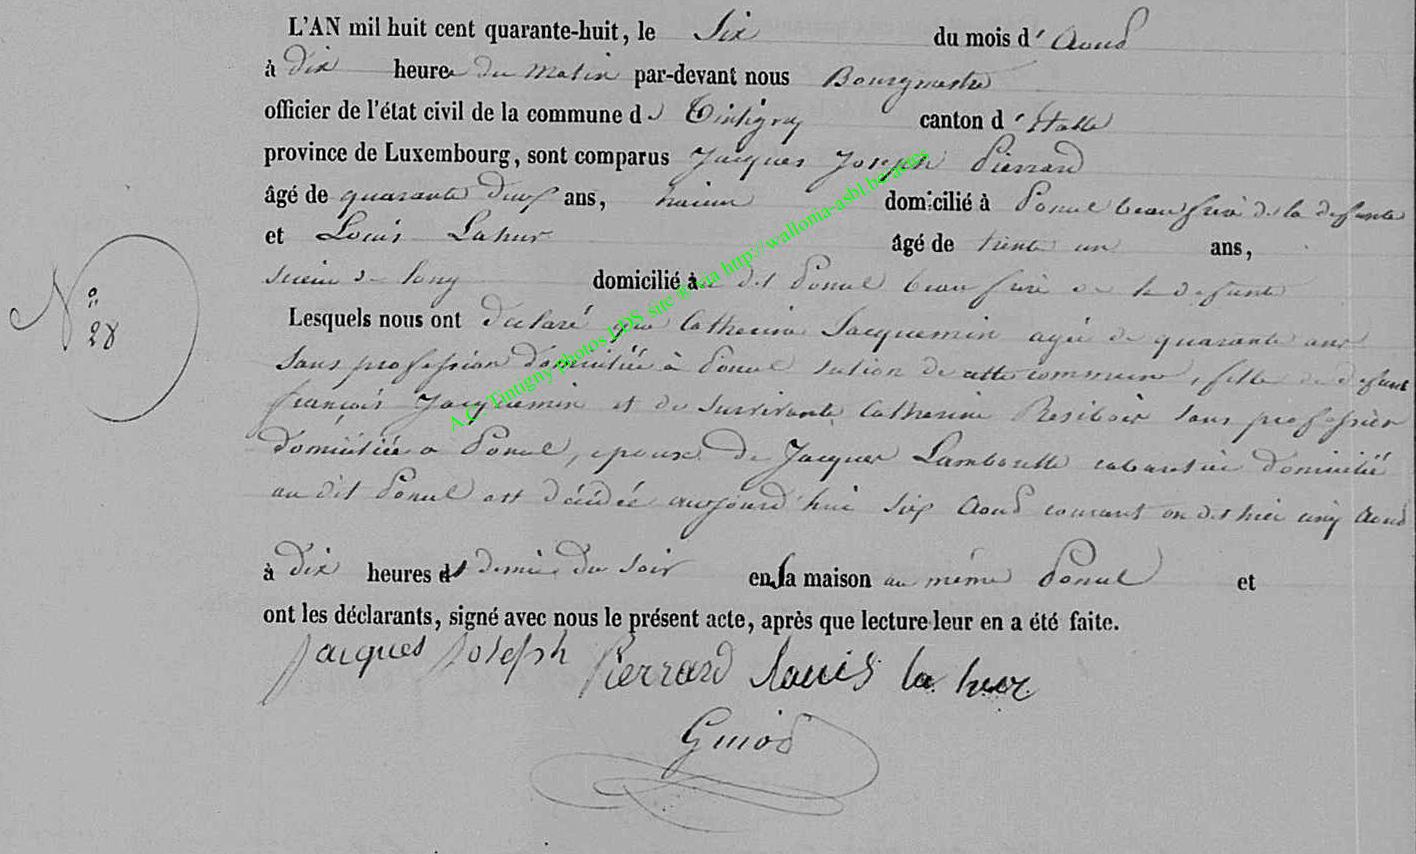 L'AN mil huit cent quarante-huit, le Six du mois d' Aout
à Dix heure du Matin par-devant nous Bourgmestre
officier de l'état civil de la commune d Tintigny canton d' Etalle
province de Luxembourg, sont comparus Jacques Joseph Pierrard
âgé de quarante ans, domicilié à Ponul beau frère de la defunte
et Louis Lahur âgé de trente un ans,
scieur de long domicilié à dit Ponul beau frère de la defunte
N° 28
Lesquels nous ont declaré que Catherine Jacquemin agée de quarante ans
sans profession domiciliée à Ponul section de cette commune, fille de defunt
françois Jacquemin et de survivante Catherine Resiboir sans profession
domiciliée a Ponul, epouse de Jacques Lamboulle cabaretier domicilié
au dit Ponul est décédée aujourd'hui six Aout courant on dit hier cinq Aout
à Dix heures et demie du soir en la maison au même Ponul et
ont les déclarants, signé avec nous le présent acte, après que lecture leur en a été faite.
Jacques Joseph Pierrard Louis la hur
Guiod
A.C. Tintigny photos LDS site @ via http://wallonia-asbl.be/actes